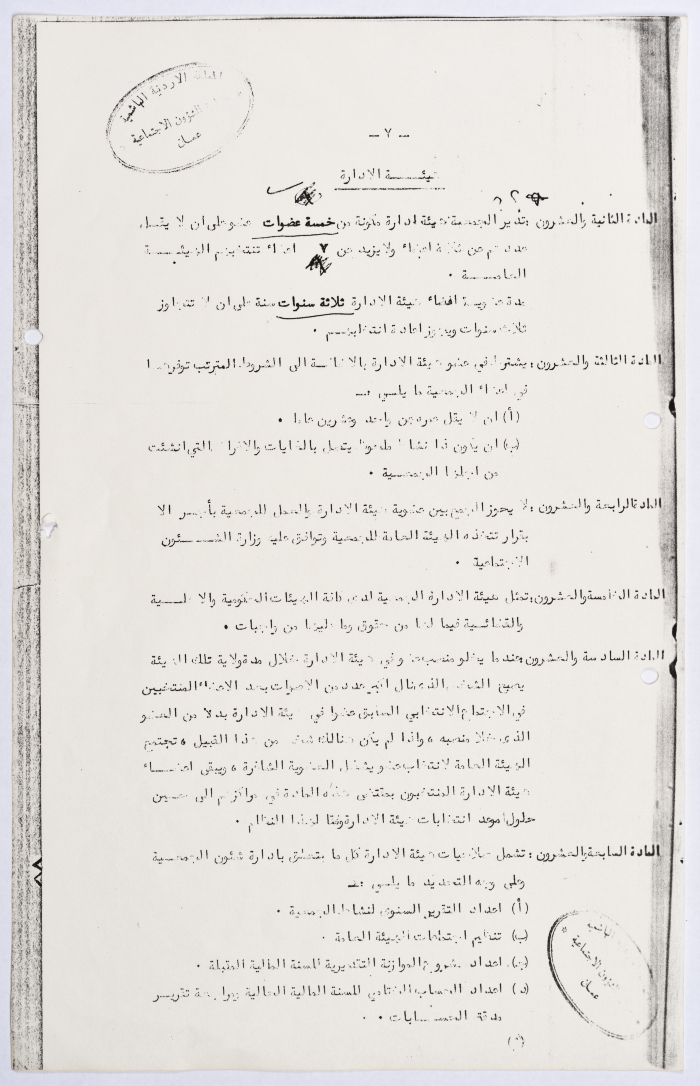 المملكة الاردنية الهاشمية
الشؤون الاجتماعية
عمان
- ٧ -
هيئـــة الادارة
المادة الثانية والعشرون : تدير الجمعية هيئة ادارة مكونة من خمسة عضوات عضو على ان لا يقـل
عددهم عن ثلاثة اعضاء ولا يزيد عن ٧ اعضاء تنتخبهم الهيئـــة
العامـــة .
مدة عضويـة اعضاء هيئة الادارة ثلاثة سنوات سنة على ان لا تتجاوز
ثلاث سنوات ويجوز اعادة انتخابهـم .
المادة الثالثة والعشرون : يشترط في عضو هيئة الادارة بالاضافـة الى الشروط المترتب توفرهـا
في اعضاء الجمعية ما يلـي :ـ
(أ) ان لا يقل عمره عن واحد وعشرين عاما .
(ب) ان يكون ذا نشاط ملحوظ يتصل بالغايات والاغراض التي انشئت
من اجلها الجمعـية .
المادة الرابعة والعشرون : لا يجوز الجمع بين عضوية هيئة الادارة والعمل للجمعية بأجـر الا
بقرار تتخذه الهيئة العامة للجمعية وتوافق عليه وزارة الشـــئون
الاجتماعية .
المادة الخامسة والعشرون : تمثل هيئة الادارة الجمعية لدى كافة الهيئات الحكومية والاهلـية
والقضائـية فيما لها من حقوق وما عليها من واجبات .
المادة السادسة والعشرون : عندما يخلو منصب عضو في هيئة الادارة خلال مدة ولاية تلك الهيئة
يصبح الشخص الذي نال اكبر عدد من الاصوات بعد الاعضاء المنتخبين
في الاجتماع الانتخابي السابق عضوا في هيئة الادارة بدلا من العضو
الذي خلا منصبه ، واذا لم يكن هنالك شخص من هذا القبيل ، تجتمع
الهيئة العامة لانتخاب عضو يشغل العضوية الشاغرة ، ويبقى اعضـاء
هيئة الادارة المنتخبون بمقتضى هذه المادة في مراكزهم الى حـين
حلول موعد انتخابات هيئة الادارة وفقا لهذا النظام .
المادة السابعة والعشرون : تشمل صلاحيات هيئة الادارة كل ما يتعلق بادارة شئون الجمعـية
وعلى وجه التحديد ما يلـي :ـ
(أ) اعداد التقرير السنوي لنشاط الجمعية .
(ب) تنظيم اجتماعات الهيئة العامة .
(ج) اعداد مشروع الموازنة التقديرية للسنة المالية المقبلة .
(د) اعداد الحساب الختامي للسنة المالية الحالية ومراجعة تقريـر
مدقق الحسـابات .
(هـ)
الهاشمية
الشؤون الاجتماعية
عمان